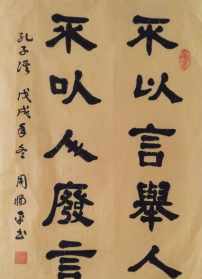 不以言舉人
不以人廢言
孔子語 戊戌年冬 周